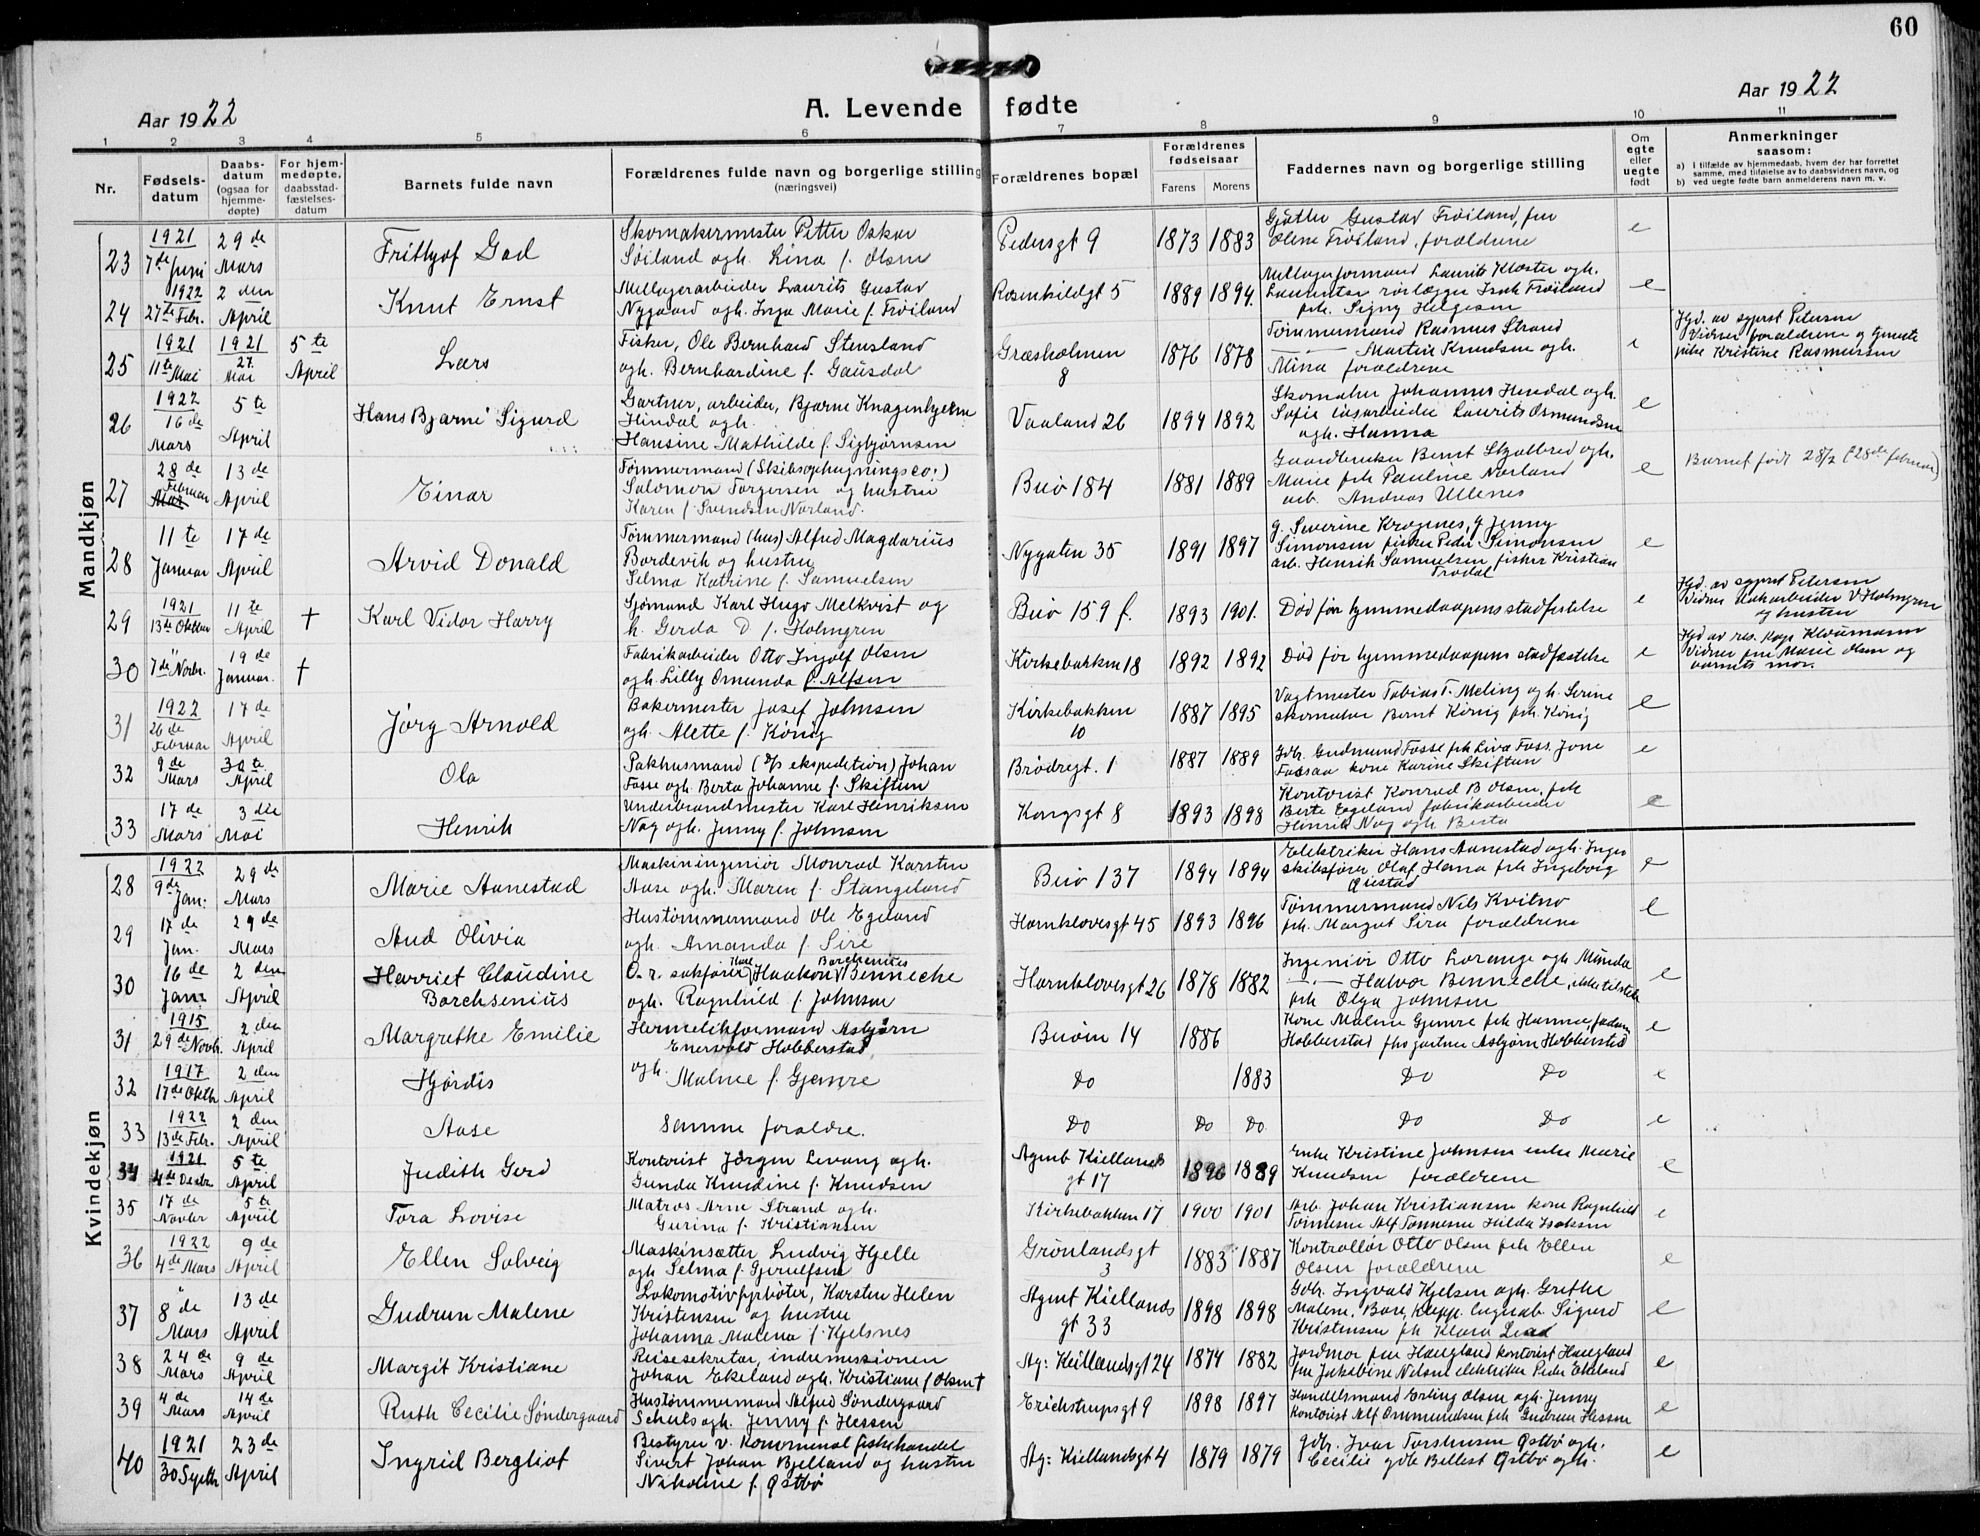 60
Aar 1922
A. Levende fødte
Aar 1922
1 2 3 4 5 6 7 8 9 10 11
Nr.
Fødsels-
datum
Daabs-
datum
(ogsaa for
hjemme-
døpte)
For hjem-
medøpte,
daabsstad-
fæstelses-
datum
Barnets fulde navn
Forældrenes fulde navn og borgerlige stilling
(næringsvei)
Forældrenes bopæl
Forældrenes
fødselsaar
Farens Morens
Faddernes navn og borgerlige stilling
Om
egte
eller
uegte
født
Anmerkninger
saasom:
a) I tilfælde av hjemmedaab, hvem der har forrettet
samme, med tilføielse av to daabsvidners navn, og
b) ved uegte fødte barn anmelderens navn m. v.
Mandkjøn
23 1921 7de Juni 29de Mars
Frithjof Gad
Skomakermester Petter Oskar
Søiland ogh. Lina f. Olsen
Pedersgt 9 1873 1883
Gustav Frøiland, fru
Oline Frøiland, forældrene
e
24 1922 27de Febr. 2den April
Knut Ernst
Mellagerarbeider Laurits Gustav
Nygaard ogh. Inga Marie f. Frøiland
Rosenkildgt 5 1889 1894.
Mellagerformand Laurits Klæster ogh.
Laurentse rørlægger Isak Frøiland
frk. Signy Helgesen
e
25 1921 11te Mai 1921 27. Mai 5te April
Lars
Fisker, Ole Bernhard Stensland
ogh. Bernhardine f. Gausdal
Græsholmen
8
1876 1878
Tømmermand Rasmus Strand
Martin Knudsen ogh.
Mina forældrene
e
Hjd. av sgprst Petersen
Vidner forældrene og
frk Kristine Rasmussen
26 1922 16de Mars 5te April
Hans Bjarne Sigurd
Gartner, arbeider, Bjarne Knagenhjelm
Hindal ogh.
Hansine Mathilde f. Sigbjørnsen
Vaaland 26 1894 1892
Skomaker Johannes Hindal ogh.
Sofie løsarbeider Laurits Osmundsen
ogh. Hanna
e
27 28de Februar 13de April
Einar
Tømmermand (Skibsophugningsco.)
Salomon Torgersen og hustru
Karen f. Svendsen Norland.
Buø 184 1881 1889
Gaardbruker Bernt Skjolbred ogh.
Marie frk Pauline Norland
arb. Andreas Ullenes
e
Barnet født 28/2 (28de februar)
28 11te Januar 17de April
Arvid Donald
Tømmermand (hus) Alfred Magdarius
Bordevik og hustru
Selma Katrine f. Samuelsen
Nygaten 35 1891 1897
g. Severine Krogenes, g. Jenny
Simonsen fisker Peder Simonsen
arb. Henrik Samuelsen, fisker Kristian
Trodal
e
29 1921 13de Oktbr 11te April †
Karl Vidar Harry
Sjømand Karl Hugo Melkvist og
h. Gerda D f. Holmgren
Buø 159 f. 1893 1901.
Død før hjemmedaapens stadfestelse
e
Hjd. av sgprst Petersen
Vidner arbeider V Holmgren
og hustru
30 7de Novbr. 19de Januar. †
Fabrikarbeider Otto Ingolf Olsen
ogh. Lilly Omunda f. Alfsen
Kirkebakken 18 1892 1892
Død før hjemmedaapens stadfæstelse
e
Hjd av res. kap Kloumann
Vidner fru Marie Olsen og
barnets mor.
31 1922 26de Februar 17de April
Jørg Arnold
Bakermester Josef Johnsen
ogh. Alette f. König
Kirkebakken
10
1887 1895
Vagtmester Tobias T. Meling ogh. Serine
skomaker Bernt König frk. König
e
32 9de Mars 30te April
Ola
Pakhusmand (D/S ekspedition) Johan
Fosse ogh. Berta Johanne f. Skiftun
Brødregt. 1 1887 1889
Gdbr. Gudmund Fosse frk Liva Foss. Jone
Fossaa kone Karine Skiftun
e
33 17de Mars 3die Mai
Henrik
Underbrandmester Karl Henriksen
Nag ogh. Jenny f. Johnsen
Kongsgt 8 1893 1898
Kontorist Konrad B Olsen, frk
Berte Egeland fabrikarbeider
Henrik Nag ogh Berta
e
Kvindekjøn
28 1922 9de Jan. 29de Mars
Marie Aanestad
Maskiningeniør Monrad Karsten
Aase ogh. Maren f. Stangeland
Buø 137 1894 1894
Elektriker Hans Aanestad ogh. Inger
skibsfører Olaf Hana frk Ingeborg
e
29 17de Jan. 29de Mars
Aud Olivia
Hustømmermand Ole Egeland
ogh. Amanda f. Sire
Harnklovesgt 45 1893 1896
Tømmermand Nils Kvitno
frk. Margot Sira forældrene
e
30 16de Jan. 2den April
Harriet Claudine
Borchsenius
O.r. sakfører Haakon Borchsenius Bennecke
ogh. Ragnhild f. Johnsen
Harnklovesgt 26 1878 1882
Ingeniør Otto Lorange ogh Minda
Halvor Bennecke, ikke tilstede
frk Olga Johnsen
e
31 1915 29de Novb. 2den April
Margrethe Emilie
Hermetikformand Asbjørn
Enevold Hobberstad
ogh. Malene f. Gjemre
Buøen 14 1886
Kone Malene Gjemre frk Hanna,
Hobberstad gartner Asbjørn Hobberstad
e
32 1917 17de Oktbr 2den April
Hjørdis
Do 1883 Do Do e
33 1922 13de Febr. 2den April
Aase
Samme forældre.
Do Do Do Do Do e
34 1921 4de Desbr 5te April
Judith Gerd
Kontorist Jørgen Levang ogh.
Gunda Knudine f. Knudsen
Agnb Kiellands
gt 17
1896 1889
Enke Kristine Johnsen enke Marie
Knudsen forældrene
e
35 17de Novbr 5te April
Tora Lovise
Matros Arne Strand ogh.
Gurina f. Kristiansen
Kirkebakken 17 1900 1901
Arb. Johan Kristiansen kone Ragnhild
Tønnesen Alf Tønnesen Hilda Isaksen
e
36 1922 4de Mars 9de April
Ellen Solveig
Maskinsætter Ludvig Hjelle
ogh Selma f. Gjerulfsen
Grønlandsgt
3
1883 1887
Kontrollør Otto Olsen frk Ellen
Olsen forældrene
e
37 8de Mars 13de April
Gudrun Malene
Lokomotivfyrbøter, Karsten Helen
Kristensen og hustru
Johanna Malena f. Kjelsnes
Agnt Kiellands
gt 33
1898 1898
Gdbr. Ingvald Kjelsen ogh. Grethe
Malene, Bore, Klepp. Sigurd
Kristensen frk Klara
e
38 24de Mars 9de April
Margit Kristiane
Reisesekretær, indremissionen
Johan Ekeland ogh. Kristiane f Olsen †
Ag: Keillandsgt 24 1874 1882
Jordmor fru Haugland kontorist Haugland
fru Jakobine Nilsen elektriker Peder Ekeland
e
39 4de Mars 14de April
Ruth Cecilie Søndergaard
Hustømmermand Alfred Søndergaard
Scheels ogh. Jenny f. Hessen
Erichstrupsgt 9 1898 1897
Handelsmand Erling Olsen ogh. Jenny
Kontorist Alf Ommundsen frk Gudrun Hessen
e
40 1921 30 Septbr 23de April
Ingrid Bergliot
Bestyrer v. Kommunal fiskehandel
Sivert Johan Bjelland og hustru
Nikoline f. Østbø
Ag: Kiellandsgt 4 1879 1879
gdbr. Ivar Torstensen Østbø ogh.
Cecilie gdb Østbø ogh.
e